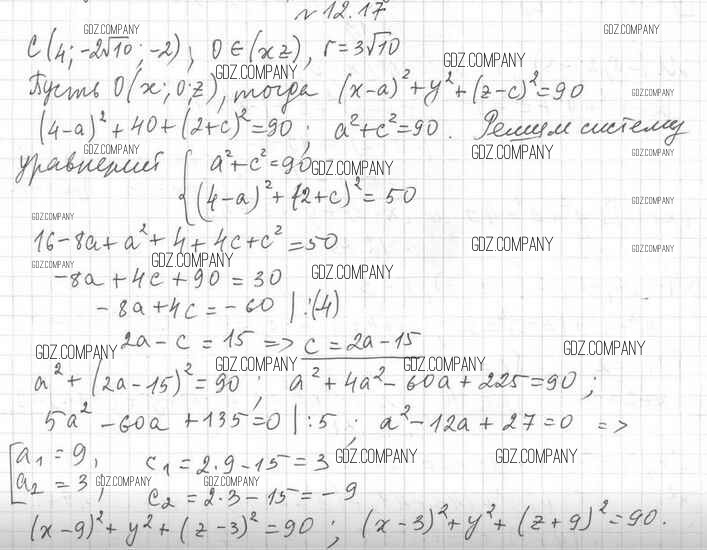 №12.17
C(4; -2√10; -2); O∈(xz), r=3√10
Пусть O(x; 0; z), тогда (x-a)²+y²+(z-c)²=90
(4-a)²+40+(2+c)²=90; a²+c²=90. Решим систему
уравнений { a²+c²=90
(4-a)²+(2+c)²=50
16-8a+a²+4+4c+c²=50
-8a+4c+90=30
-8a+4c=-60 |:(-4)
2a-c=15 => c=2a-15
a²+(2a-15)²=90; a²+4a²-60a+225=90;
5a²-60a+135=0 |:5; a²-12a+27=0 =>
[ a₁=9, c₁=2·9-15=3
a₂=3, c₂=2·3-15=-9
(x-9)²+y²+(z-3)²=90; (x-3)²+y²+(z+9)²=90.
GDZ.COMPANY GDZ.COMPANY
GDZ.COMPANY GDZ.COMPANY
GDZ.COMPANY GDZ.COMPANY
GDZ.COMPANY GDZ.COMPANY GDZ.COMPANY
GDZ.COMPANY GDZ.COMPANY
GDZ.COMPANY GDZ.COMPANY
GDZ.COMPANY GDZ.COMPANY GDZ.COMPANY
GDZ.COMPANY GDZ.COMPANY
GDZ.COMPANY GDZ.COMPANY
GDZ.COMPANY GDZ.COMPANY
GDZ.COMPANY GDZ.COMPANY
GDZ.COMPANY GDZ.COMPANY